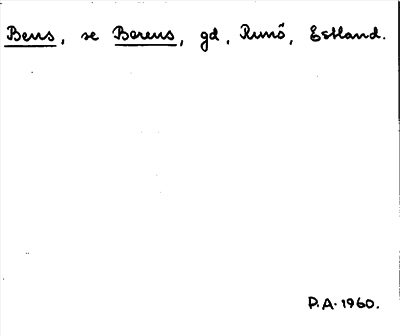 Bens, se Berens, gd, Runö, Estland.
P.A. 1960.